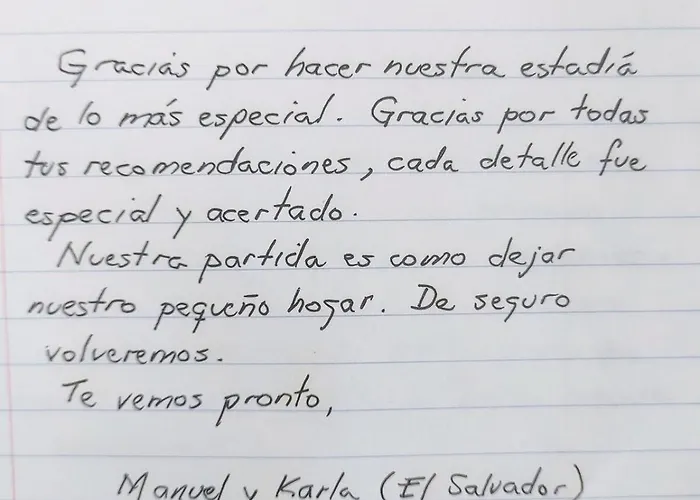 Gracias por hacer nuestra estadiá
de lo más especial. Gracias por todas
tus recomendaciones, cada detalle fue
especial y acertado.
Nuestra partida es como dejar
nuestro pequeño hogar. De seguro
volveremos.
Te vemos pronto,
Manuel y Karla (El Salvador)